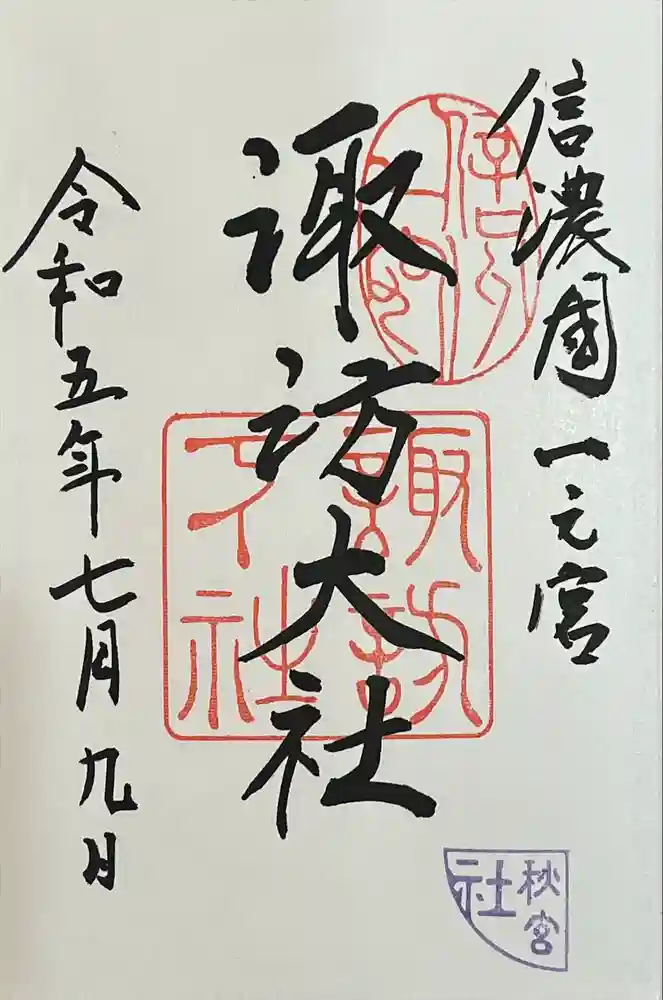 信濃國一之宮
諏訪大社
令和五年七月九日
諏訪大社
秋宮
社